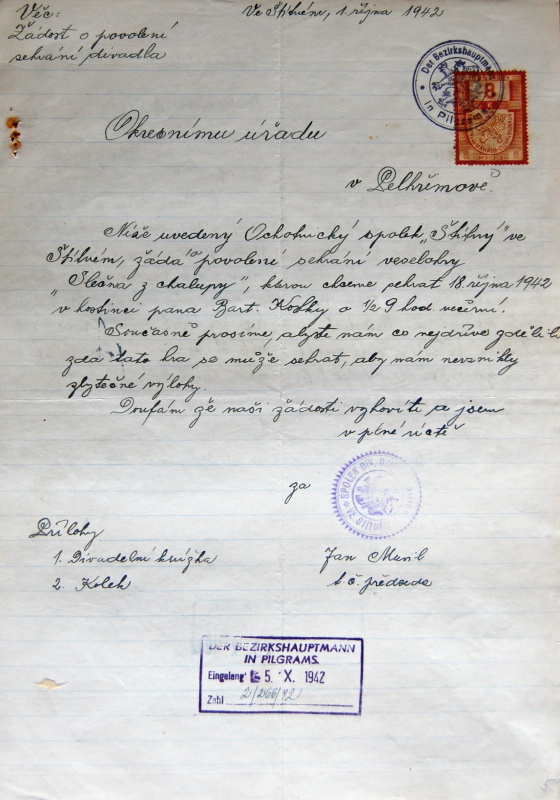 Věc:
Žádost o povolení
sehrání divadla
Ve Štítném, 1. října 1942
Der Bezirkshauptmann
in Pilgrams
8
Okresnímu úřadu
v Pelhřimově.
Níže uvedený Ochotnický spolek „Štítný" ve
Štítném, žádá o povolení sehrání veselohry
„Slečna z chalupy", kterou chceme sehrat 18. října 1942
v hostinci pana Bart. Košky o 1/2 9 hod. večerní.
Současně prosíme, abyste nám co nejdříve zdělili
zda tato hra se může sehrat, aby nám nevznikly
zbytečné výlohy.
Doufám že naši žádosti vyhovíte a jsem
v plné úctě
za
SPOLEK DIV.
VE ŠTÍTNÉM
Přílohy
1. Divadelní knížka
2. Kolek
Jan
t. č. předseda
DER BEZIRKSHAUPTMANN
IN PILGRAMS.
Eingelangt 5. X. 1942
Zahl